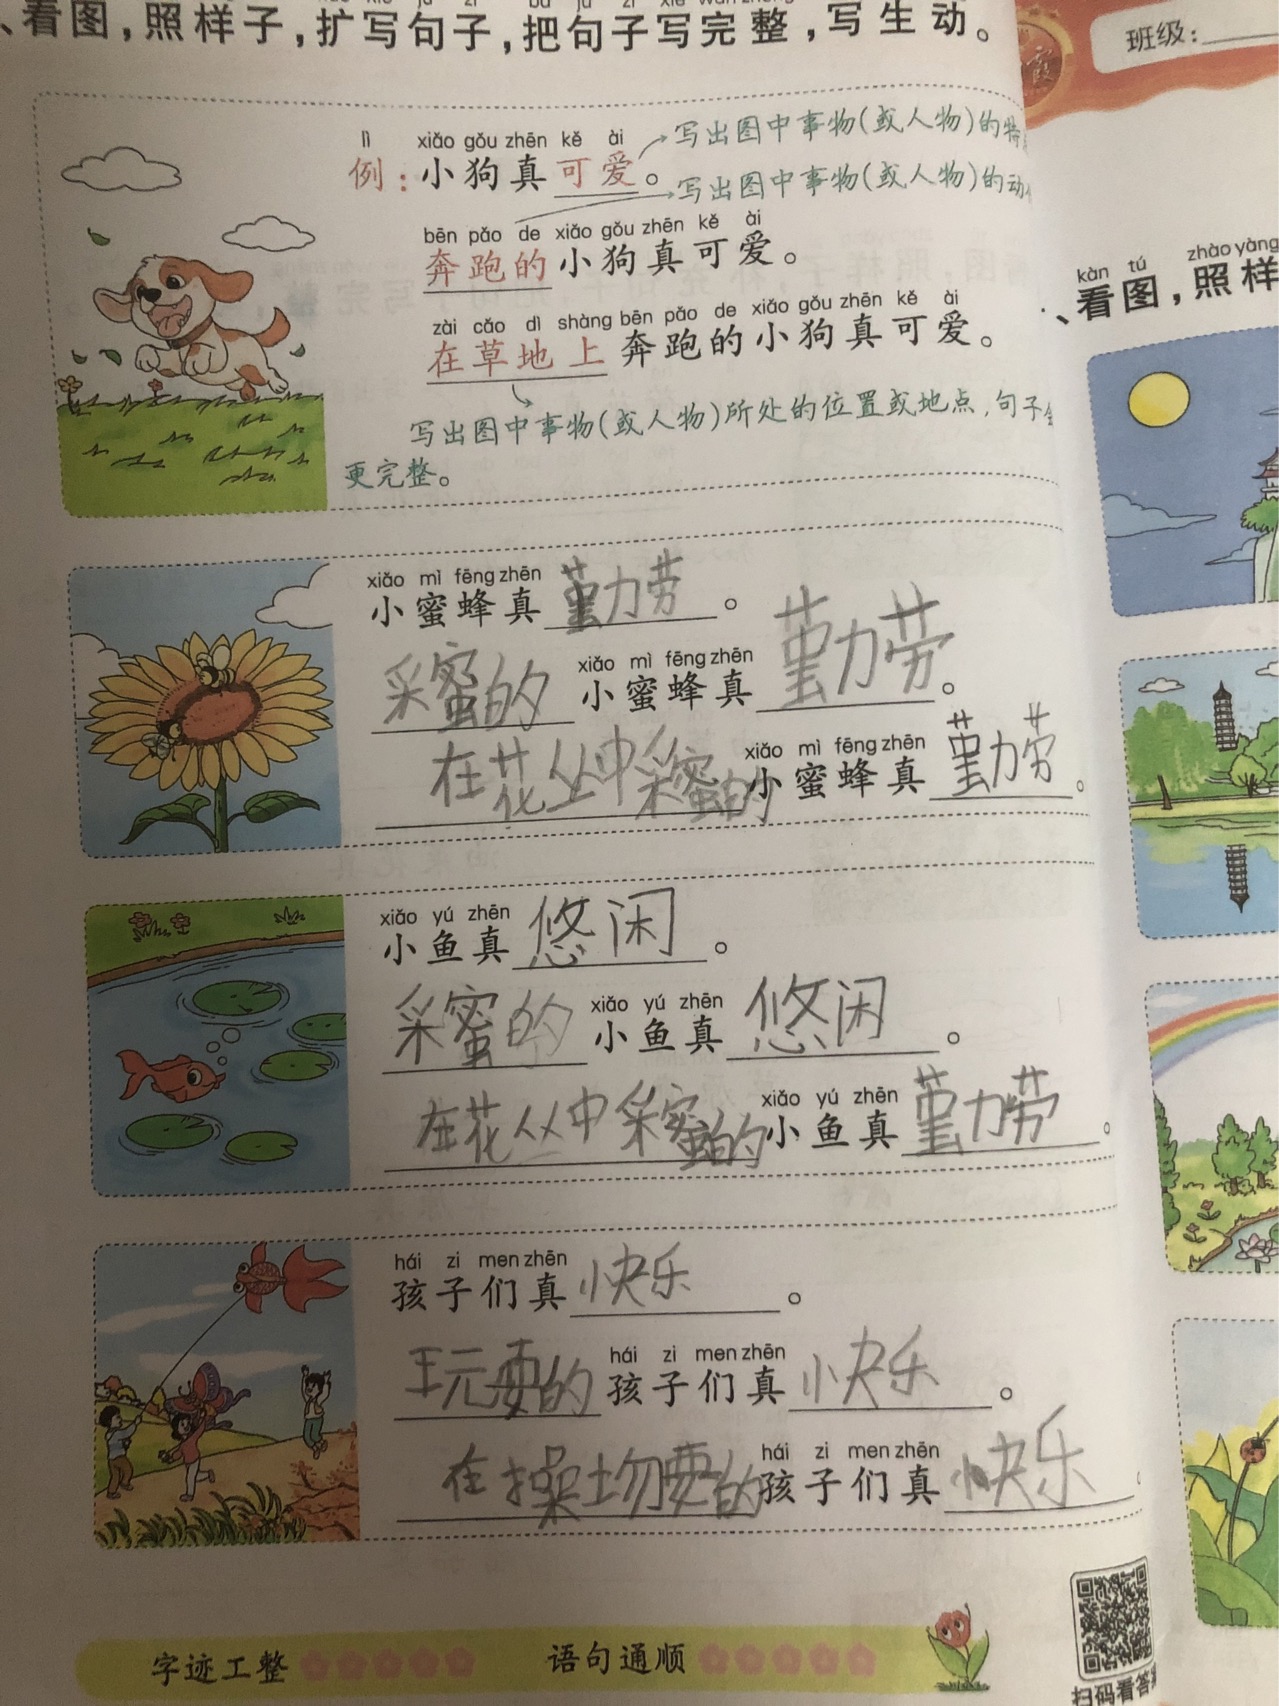 、看图，照样子，扩写句子，把句子写完整，写生动。
lì xiǎo gǒu zhēn kě ài
例：小狗真可爱。
写出图中事物（或人物）的特
写出图中事物（或人物）的动
bēn pǎo de xiǎo gǒu zhēn kě ài
奔跑的小狗真可爱。
zài cǎo dì shàng bēn pǎo de xiǎo gǒu zhēn kě ài
在草地上奔跑的小狗真可爱。
写出图中事物（或人物）所处的位置或地点，句子会
更完整。
xiǎo mì fēng zhēn
小蜜蜂真勤劳。
xiǎo mì fēng zhēn
采蜜的小蜜蜂真勤劳。
xiǎo mì fēng zhēn
在花丛中采蜜的小蜜蜂真勤劳。
xiǎo yú zhēn
小鱼真悠闲。
xiǎo yú zhēn
采蜜的小鱼真悠闲。
xiǎo yú zhēn
在花丛中采蜜的小鱼真勤劳。
hái zi men zhēn
孩子们真快乐。
hái zi men zhēn
玩耍的孩子们真快乐。
hái zi men zhēn
在操场耍的孩子们真快乐。
字迹工整 语句通顺
班级：
霞
kàn tú zhào yàng
、看图，照样
扫码看答案